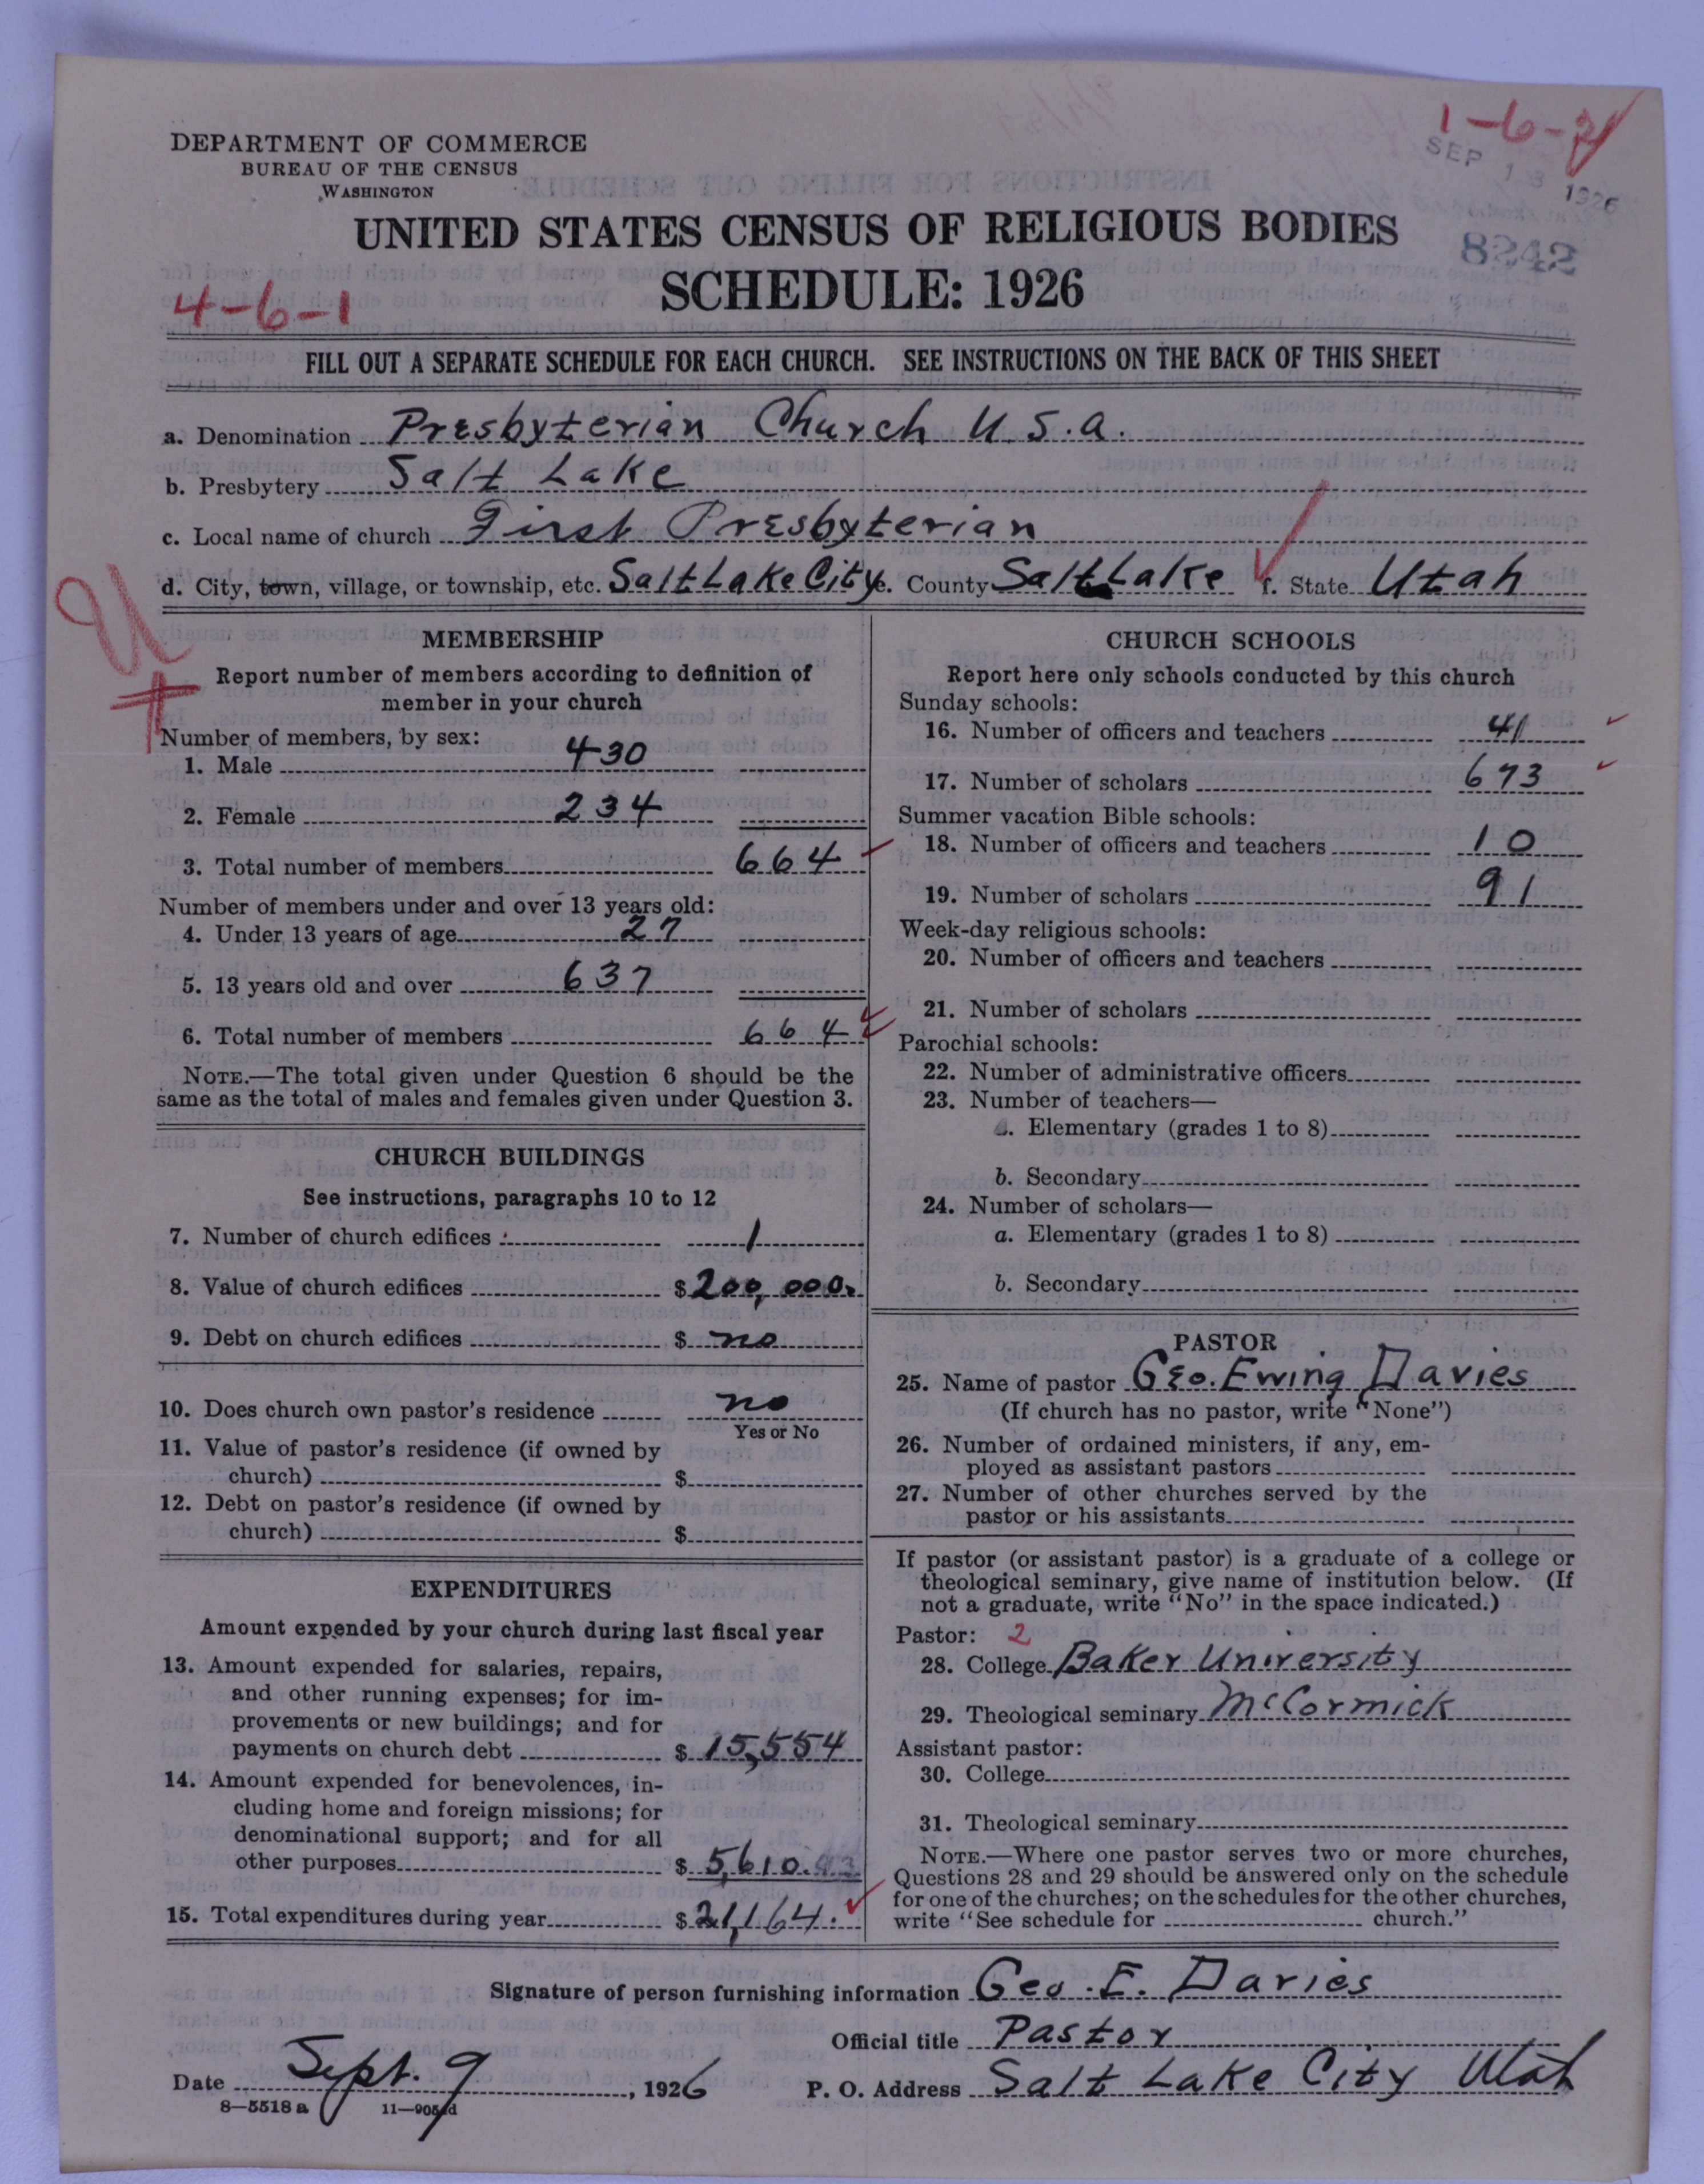 1-6-
SEP 13 1926
8242
DEPARTMENT OF COMMERCE
BUREAU OF THE CENSUS
WASHINGTON
UNITED STATES CENSUS OF RELIGIOUS BODIES
SCHEDULE: 1926
4-6-1
FILL OUT A SEPARATE SCHEDULE FOR EACH CHURCH. SEE INSTRUCTIONS ON THE BACK OF THIS SHEET
a. Denomination Presbyterian Church U.S.a.
b. Presbytery Salt Lake
c. Local name of church First Presbyterian
d. City, town, village, or township, etc. Salt Lake City e. County Salt Lake f. State Utah
MEMBERSHIP
Report number of members according to definition of
member in your church
Number of members, by sex:
1. Male 430
2. Female 234
3. Total number of members 664
Number of members under and over 13 years old:
4. Under 13 years of age 27
5. 13 years old and over 637
6. Total number of members 664
NOTE.—The total given under Question 6 should be the
same as the total of males and females given under Question 3.
CHURCH BUILDINGS
See instructions, paragraphs 10 to 12
7. Number of church edifices 1
8. Value of church edifices $ 200,000.
9. Debt on church edifices $ no
10. Does church own pastor's residence no
Yes or No
11. Value of pastor's residence (if owned by
church) $
12. Debt on pastor's residence (if owned by
church) $
EXPENDITURES
Amount expended by your church during last fiscal year
13. Amount expended for salaries, repairs,
and other running expenses; for im-
provements or new buildings; and for
payments on church debt $ 15,554
14. Amount expended for benevolences, in-
cluding home and foreign missions; for
denominational support; and for all
other purposes $ 5,610.
15. Total expenditures during year $ 21,164.
CHURCH SCHOOLS
Report here only schools conducted by this church
Sunday schools:
16. Number of officers and teachers 41
17. Number of scholars 673
Summer vacation Bible schools:
18. Number of officers and teachers 10
19. Number of scholars 91
Week-day religious schools:
20. Number of officers and teachers
21. Number of scholars
Parochial schools:
22. Number of administrative officers
23. Number of teachers—
a. Elementary (grades 1 to 8)
b. Secondary
24. Number of scholars—
a. Elementary (grades 1 to 8)
b. Secondary
PASTOR
25. Name of pastor Geo. Ewing Davies
(If church has no pastor, write "None")
26. Number of ordained ministers, if any, em-
ployed as assistant pastors
27. Number of other churches served by the
pastor or his assistants
If pastor (or assistant pastor) is a graduate of a college or
theological seminary, give name of institution below. (If
not a graduate, write "No" in the space indicated.)
Pastor: 2
28. College Baker University
29. Theological seminary McCormick
Assistant pastor:
30. College
31. Theological seminary
NOTE.—Where one pastor serves two or more churches,
Questions 28 and 29 should be answered only on the schedule
for one of the churches; on the schedules for the other churches,
write "See schedule for church."
Signature of person furnishing information Geo. E. Davies
Official title Pastor
Date Sept. 9, 1926 P. O. Address Salt Lake City Utah
8—5518 a